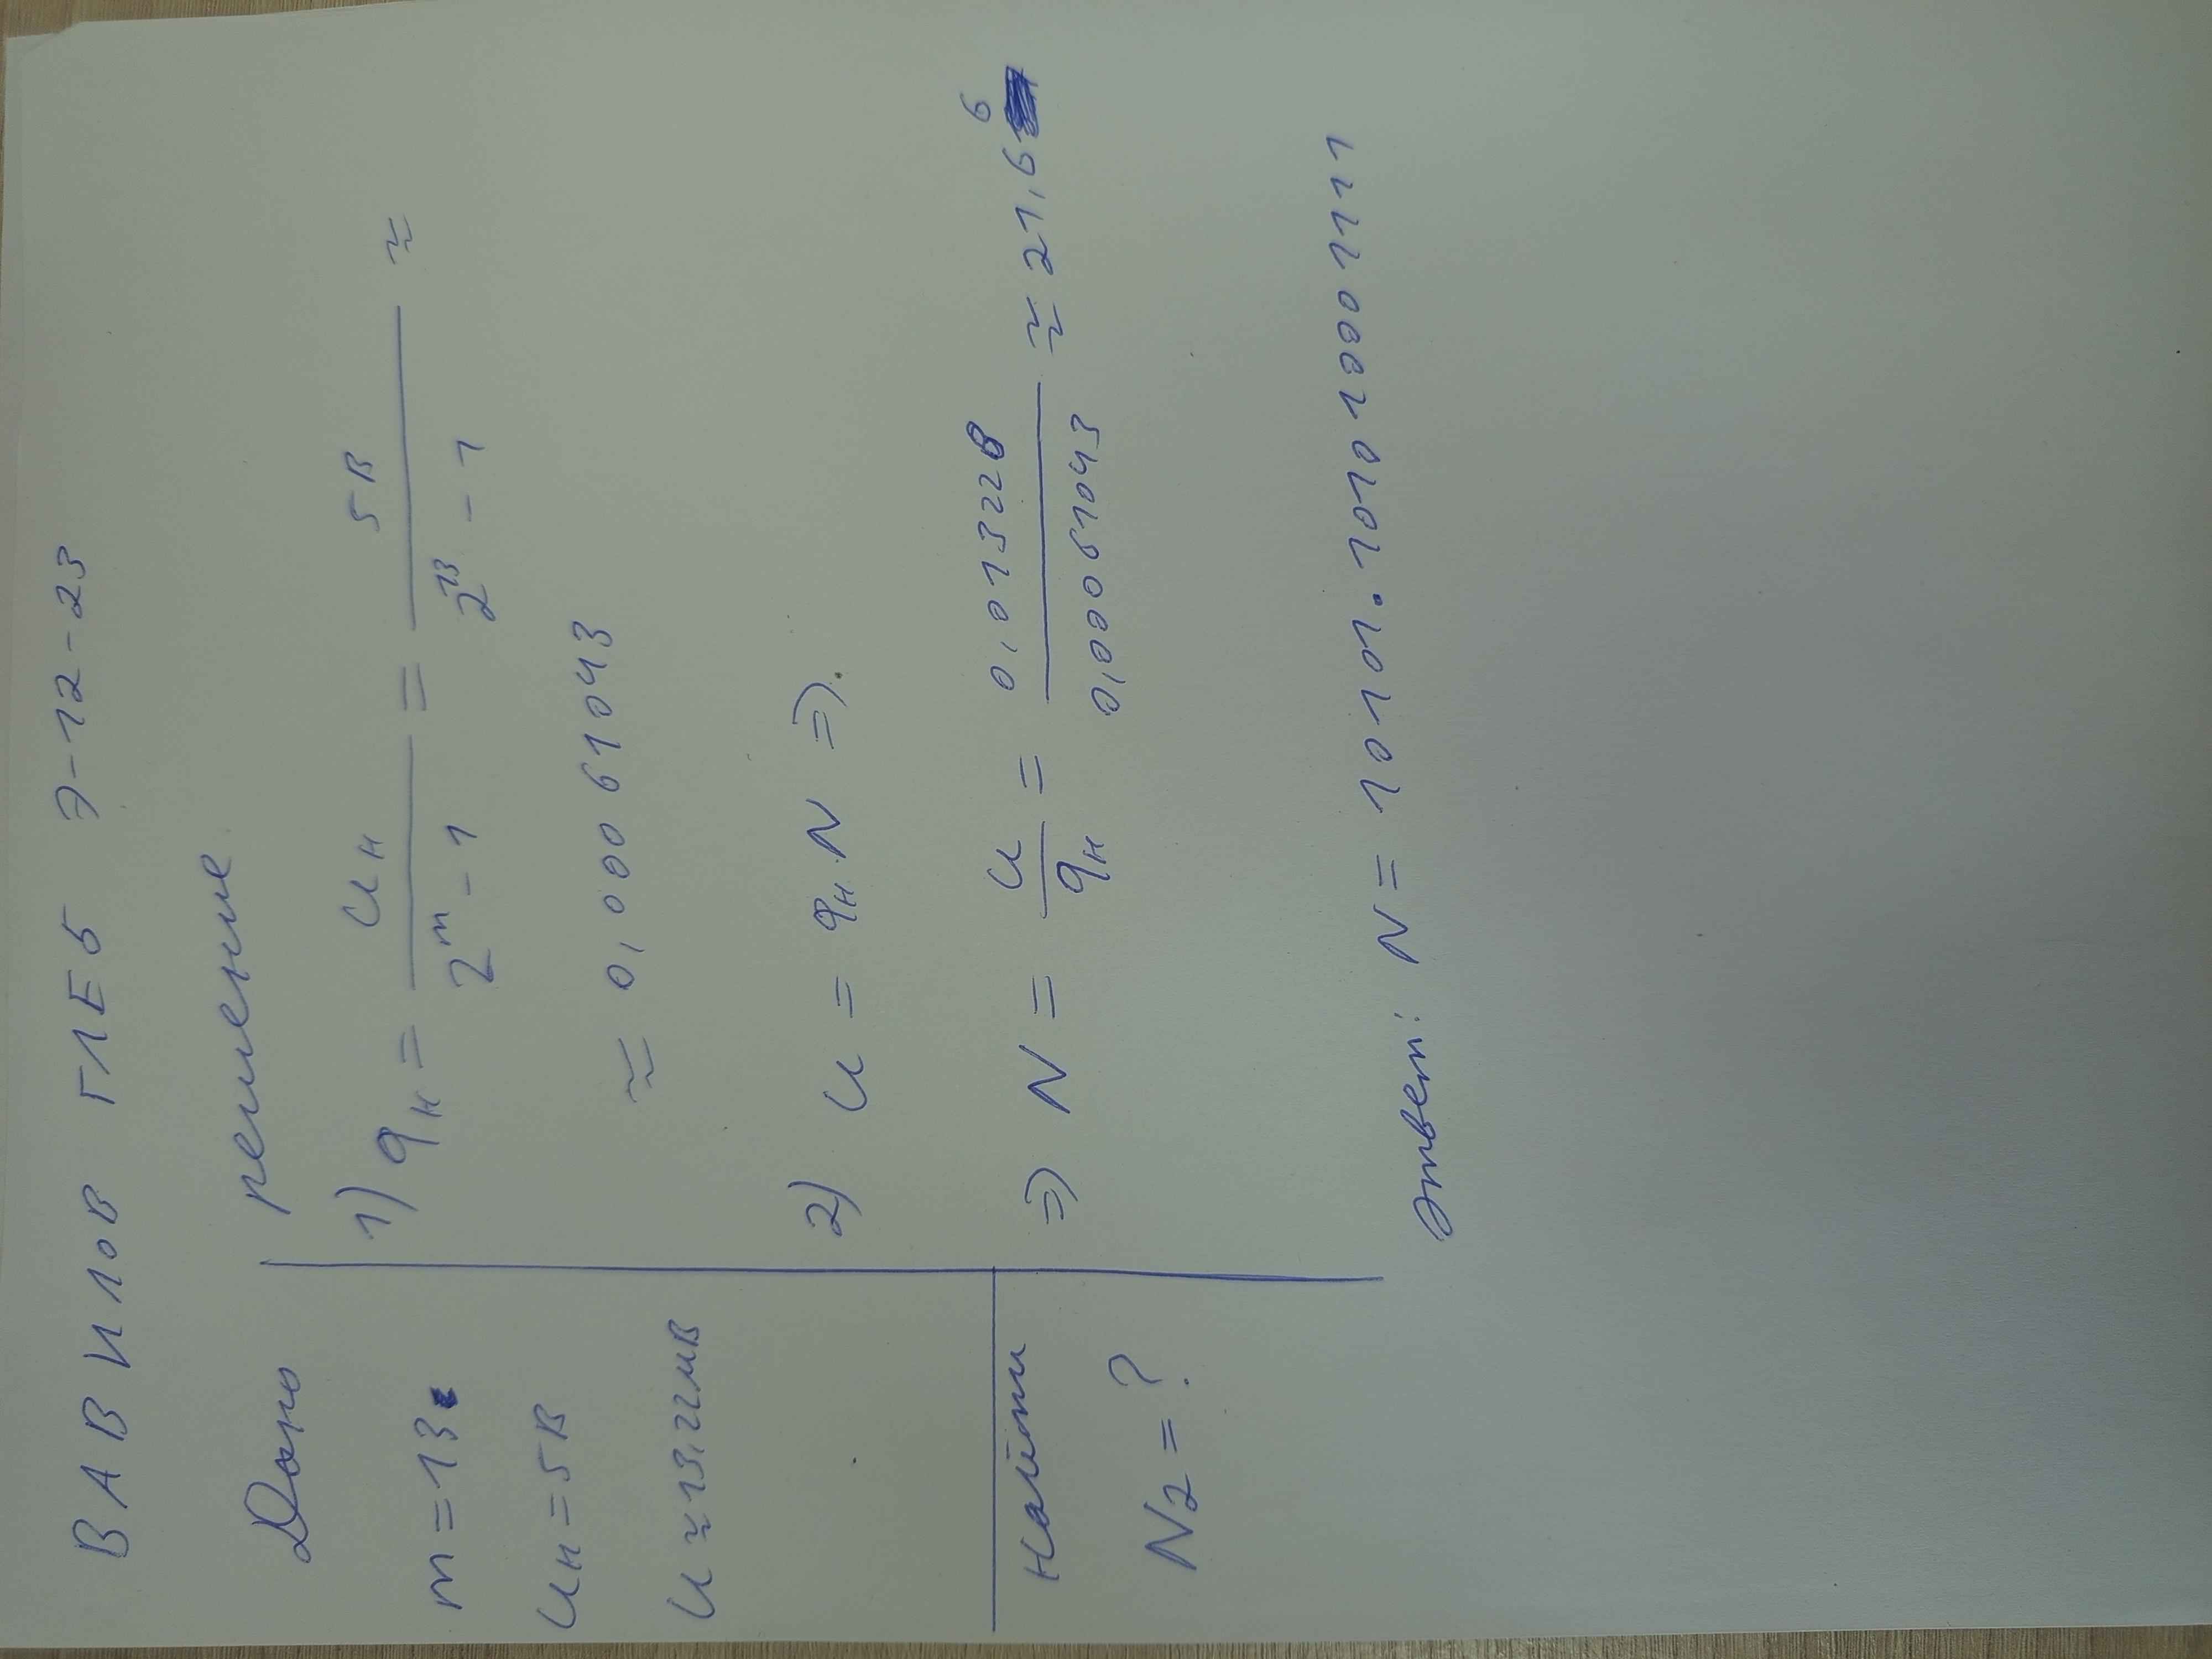 ВАВИЛОВ ГЛЕБ Э-12-23
Дано
m = 13
Uн = 5В
U ≈ 13,22мВ
Найти
N2 = ?
решение
1) qн = Uн / (2^m - 1) = 5В / (2^13 - 1) ≈
≈ 0,00061043
2) U = qн · N ⇒
⇒ N = U / qн = 0,013220 / 0,00061043 ≈ 21,66
Ответ: N = 10101.101010001111